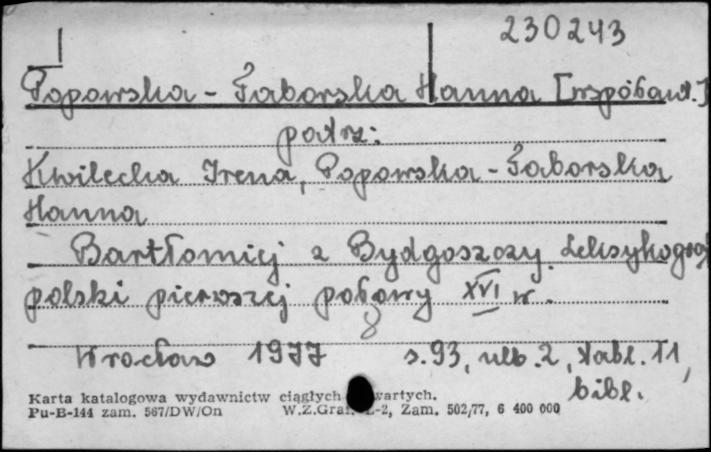 230243
Popowska-Taborska Hanna [współaut.]
patrz:
Kwilecka Irena, Popowska-Taborska
Hanna
Bartłomiej z Bydgoszczy. Leksykograf
polski pierwszej połowy XVI w.
Wrocław 1977 s. 93, nlb. 2, tabl. 11,
bibl.
Karta katalogowa wydawnictw ciągłych wartych.
Pu-B-144 zam. 567/DW/On W.Z.Graf. Z-2, Zam. 502/77, 6 400 000